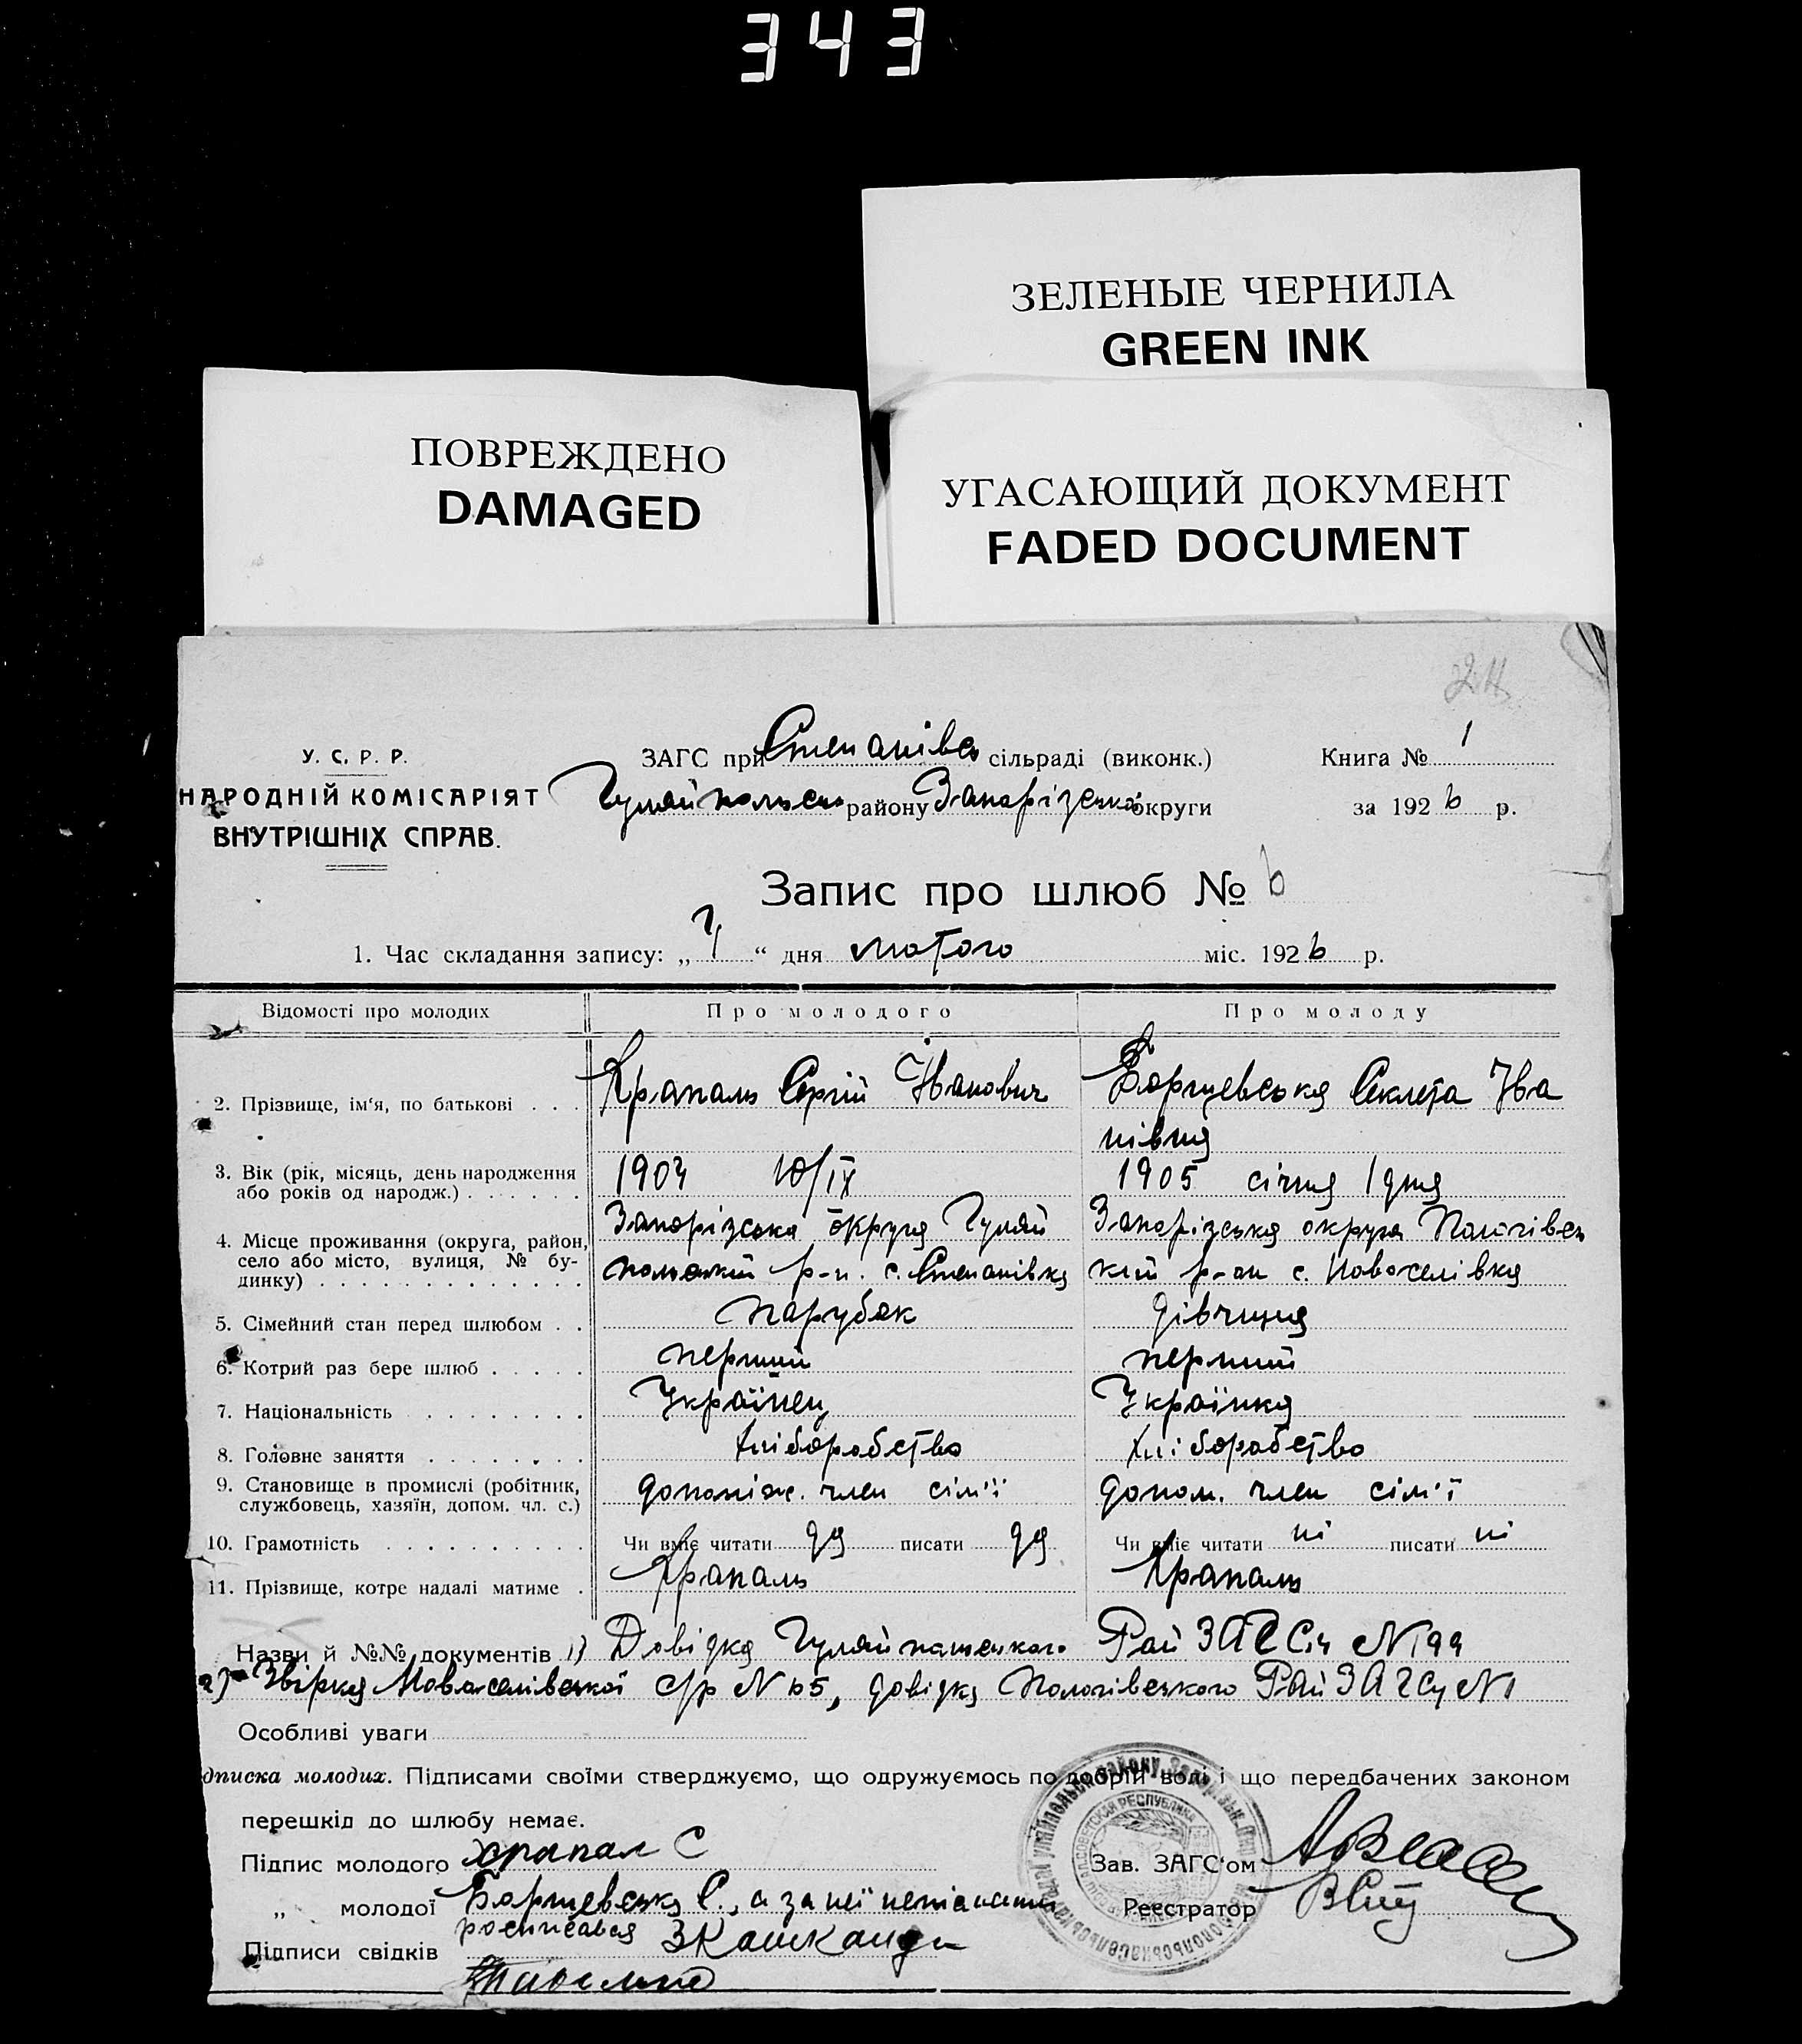 343
ЗЕЛЕНЫЕ ЧЕРНИЛА
GREEN INK
ПОВРЕЖДЕНО
DAMAGED
УГАСАЮЩИЙ ДОКУМЕНТ
FADED DOCUMENT
У. С. Р. Р.
НАРОДНІЙ КОМІСАРІЯТ
ВНУТРІШНІХ СПРАВ.
ЗАГС при Степанівсь сільраді (виконк.)
Гуляйпольсько району Запорізської округи
Книга № 1
за 1926 р.
Запис про шлюб № 6
1. Час складання запису: „ “ дня лютого міс. 1926 р.
Відомості про молодих Про молодого Про молоду
2. Прізвище, ім‘я, по батькові . . . Храпаль Сергій Іванович Борщевська Секлета Іва
нівна
3. Вік (рік, місяць, день народження 10/IX 1905 січня 1 дня
або років од народж.) . . . . . .
4. Місце проживання (округа, район, Запорізська округа Гуляй Запорізська округа Пологівсь
село або місто, вулиця, № бу- польский р-н. с. Степанівка кий р-он с. Новоселівка
динку) . . . . . . . . . . . . .
5. Сімейний стан перед шлюбом . . парубок дівчина
6. Котрий раз бере шлюб . . . . . перший перший
7. Національність . . . . . . . . Українец Українка
8. Головне заняття . . . . . . . . хліборобство хліборобство
9. Становище в промислі (робітник, член сім'ї допом. член сім'ї
службовець, хазяїн, допом. чл. с.)
10. Грамотність . . . . . . . . . . Чи вміє читати да писати да Чи вміє читати ні писати ні
11. Прізвище, котре надалі матиме . Храпаль Храпаль
Назви й №№ документів 1) Довідка Гуляйпольського РайЗАГСу №
2) Звірка Новоселівської с/р № 65, довідка Пологівського РайЗАГСу №1
Особливі уваги
дписка молодих. Підписами своїми стверджуємо, що одружуємось по добрій волі і що передбачених законом
перешкід до шлюбу немає.
Підпис молодого храпал С
Зав. ЗАГС‘ом
„ молодої Борщевська С., а за неї неписьмен
росписався
Реестратор
Підписи свідків